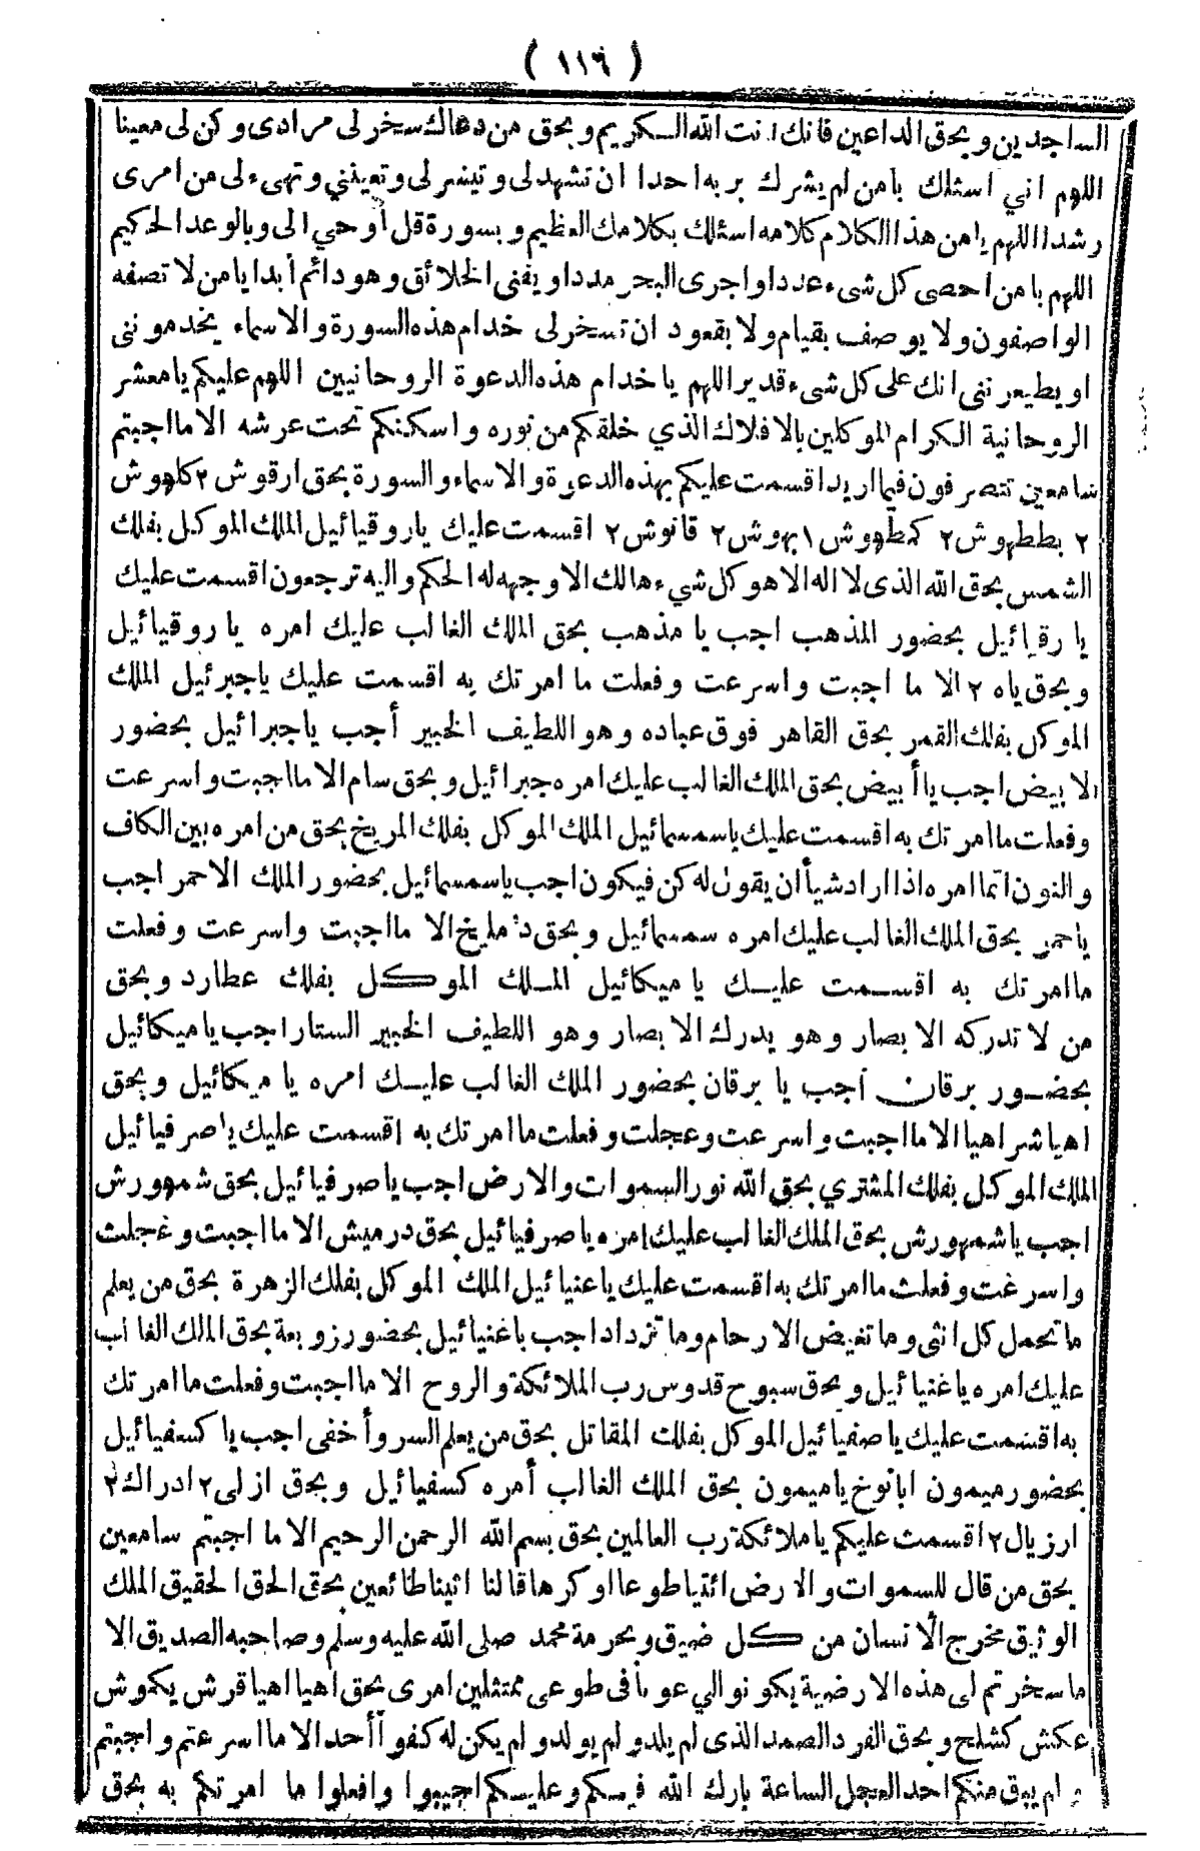 ( ١١٦ )
الساجدين وبحق الداعين فانك انت الله الكريم وبحق من دعاك سخر لى مرادى وكن لى معينا
اللهم اني اسئلك يا من لم يشرك بربه احدا ان تشهد لى وتيسر لى وتعينني وتهىء لى من امرى
رشدا اللهم يا من هذا الكلام كلامه اسئلك بكلامك العظيم وبسورة قل أوحي الى وبالوعد الحكيم
اللهم يا من احصى كل شىء عددا واجرى البحر مددا ويفنى الخلائق وهو دائم أبدا يا من لا تصفه
الواصفون ولا يوصف بقيام ولا بقعود ان تسخر لى خدام هذه السورة والاسماء يخدمونى
او يطيعرننى انك على كل شىء قدير اللهم يا خدام هذه الدعوة الروحانيين اللهم عليكم يا معشر
الروحانية الكرام الموكلين بالافلاك الذي خلقكم من نوره واسكنكم تحت عرشه الا ما اجبتم
سامعين تتصرفون فيما اريد اقسمت عليكم بهذه الدعوة والاسماء والسورة بحق ارقوش ٢ كلهوش
٢ بططهوش ٢ كمطهوش ١ بهوش ٢ قانوش ٢ اقسمت عليك يا روقيائيل الملك الموكل بفلك
الشمس بحق الله الذى لا اله الا هو كل شيء هالك الا وجهه له الحكم واليه ترجعون اقسمت عليك
يا رقيائيل بحضور المذهب اجب يا مذهب بحق الملك الغالب عليك امره يا روقيائيل
وبحق ياه ٢ الا ما اجبت واسرعت وفعلت ما امرتك به اقسمت عليك ياجبرئيل الملك
الموكل بفلك القمر بحق القاهر فوق عباده وهو اللطيف الخبير أجب ياجبرائيل بحضور
الابيض اجب يا أبيض بحق الملك الغالب عليك امره جبرائيل وبحق سام الا ما اجبت واسرعت
وفعلت ما امرتك به اقسمت عليك ياسمسمائيل الملك الموكل بفلك المريخ بحق من امره بين الكاف
والنون انما امره اذا اراد شيأ أن يقول له كن فيكون اجب ياسمسمائيل بحضور الملك الاحمر اجب
ياحمر بحق الملك الغالب عليك امره سمسمائيل وبحق دمليخ الا ما اجبت واسرعت وفعلت
ما امرتك به اقسمت عليك يا ميكائيل الملك الموكل بفلك عطارد وبحق
من لا تدركه الابصار وهو يدرك الابصار وهو اللطيف الخبير الستار اجب يا ميكائيل
بحضور برقان أجب يا برقان بحضور الملك الغالب عليك امره يا ميكائيل وبحق
اهيا شراهيا الا ما اجبت واسرعت وعجلت وفعلت ما امرتك به اقسمت عليك يا صرفيائيل
الملك الموكل بفلك المشتري بحق الله نور السموات والارض اجب يا صرفيائيل بحق شمهورش
اجب يا شمهورش بحق الملك الغالب عليك امره يا صرفيائيل بحق درميش الا ما اجبت وعجلت
واسرعت وفعلت ما امرتك به اقسمت عليك يا عنيائيل الملك الموكل بفلك الزهرة بحق من يعلم
ما تحمل كل انثى وما تغيض الارحام وما تزداد اجب ياغنيائيل بحضور زوبعة بحق الملك الغالب
عليك امره ياغنيائيل وبحق سبوح قدوس رب الملائكة والروح الا ما اجبت وفعلت ما امرتك
به اقسمت عليك يا صفيائيل الموكل بفلك المقاتل بحق من يعلم السر وأخفى اجب يا كسفيائيل
بحضور ميمون ابانوخ ياميمون بحق الملك الغالب أمره كسفيائيل وبحق ازلى ٢ ادراك ٢
ارزيال ٢ اقسمت عليكم يا ملائكة رب العالمين بحق بسم الله الرحمن الرحيم الا ما اجبتم سامعين
بحق من قال للسموات والارض ائتيا طوعا او كرها قالتا اتينا طائعين بحق الحق الحقيق الملك
الوثيق مخرج الانسان من كل ضيق وبحرمة محمد صلى الله عليه وسلم وصاحبه الصديق الا
ما سخرتم لى هذه الارضية يكونوالي عونا فى طوعى ممتثلين امرى بحق اهيا اهيا قرش يكموش
عكش كشلج وبحق الفرد الصمد الذى لم يلد ولم يولد ولم يكن له كفوا أحد الا ما اسرعتم واجبتم
ولم يبق منكم احد العجل الساعة بارك الله فيكم وعليكم اجيبوا وافعلوا ما امرتكم به بحق